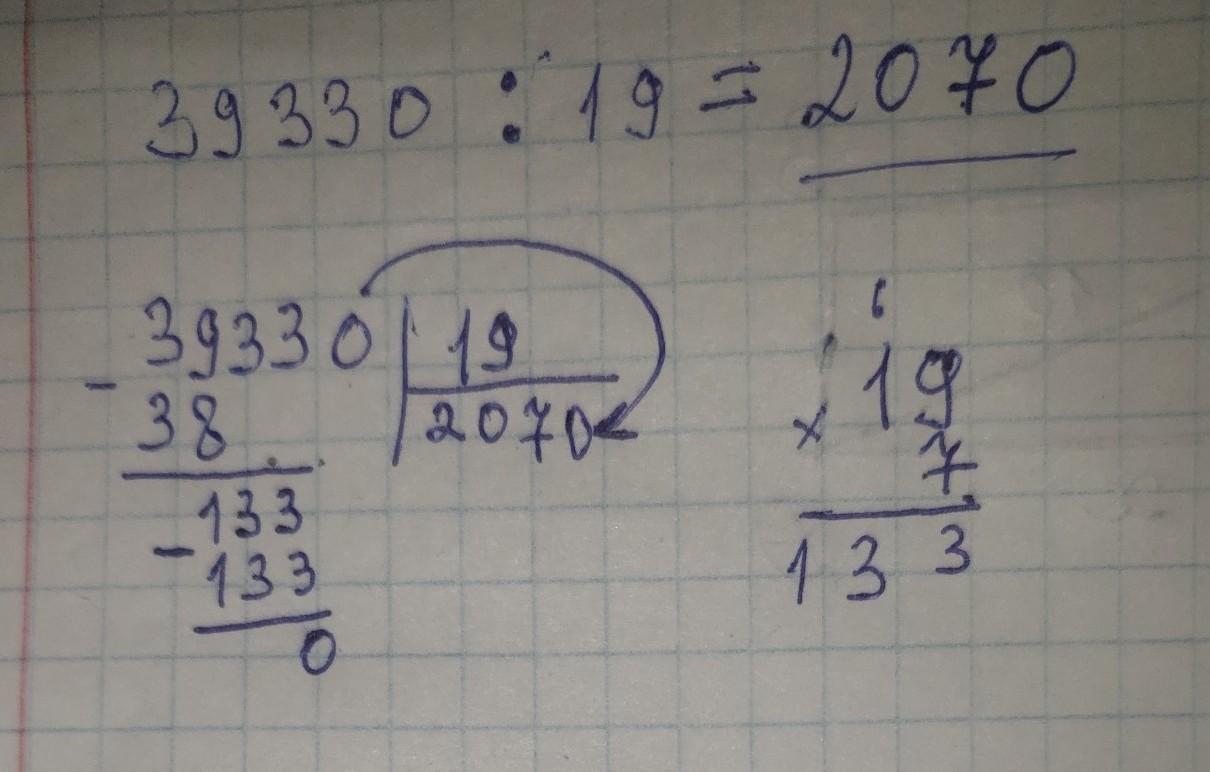 39330 : 19 = 2070
39330 | 19
- 38 | 2070
133
- 133
0
6
19
× 7
133